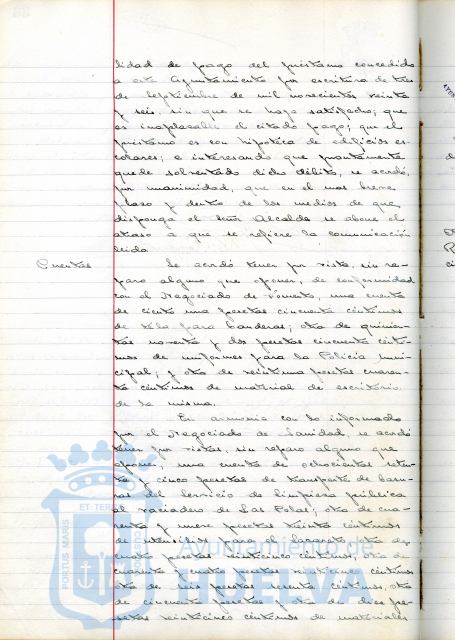 lidad de pago del préstamo concedido
a este Ayuntamiento por escritura de tres
de Septiembre de mil novecientos veinte
y seis, sin que se haya satisfecho; que
es inaplazable el citado pago; que el
préstamo es con hipoteca de edificios es-
colares; e interesando que prontamente
quede solventado dicho débito, se acordó,
por unanimidad, que en el mas breve
plazo y dentro de los medios de que
disponga el Señor Alcalde se abone el
atraso a que se refiere la comunicación
leida.
Cuentas
Se acordó tener por vista, sin re-
paro alguno que oponer, de conformidad
con el Negociado de Fomento, una cuenta
de ciento una pesetas cincuenta céntimos
de tela para banderas; otra de quinien-
tas noventa y dos pesetas cincuenta cénti-
mos de uniformes para la Policía muni-
cipal; y otra de veintiuna pesetas cuaren-
ta céntimos de material de escritorio
de la misma.
En armonia con lo informado
por el Negociado de Sanidad, se acordó
tener por vistas, sin reparo alguno que
oponer, una cuenta de ochocientas
y cinco pesetas de transporte de basu-
ras del Servicio de limpieza pública
al vaciadero de Las Polas; otra de cua-
renta y nueve pesetas treinta céntimos
de utensilios para el Lazareto, otra de
cuatro pesetas veinticinco céntimos, otra de
cuarenta y cuatro pesetas veinticinco céntimos
otra de seis pesetas céntimos, otra
de cincuenta pesetas y otra de diez pe-
setas veinticinco céntimos de materiales
Ayuntamiento de
HUELVA
PORTUS MARIS
ET TERRAE
CUSTODIA